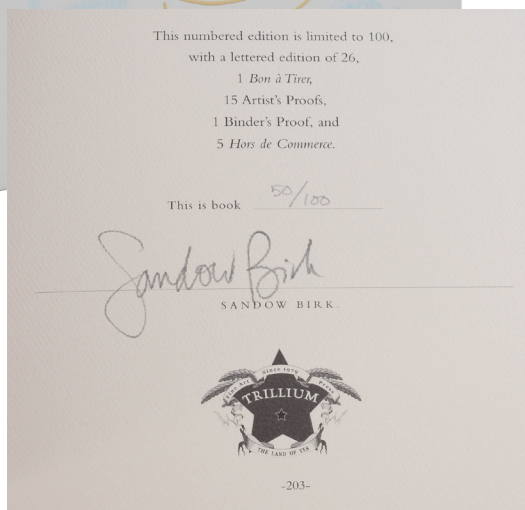 This numbered edition is limited to 100,
with a lettered edition of 26,
1 Bon à Tirer,
15 Artist's Proofs,
1 Binder's Proof, and
5 Hors de Commerce.
This is book 50/100
Sandow Birk
SANDOW BIRK.
Since 1979
Fine Art Press
TRILLIUM
THE LAND OF YES
-203-